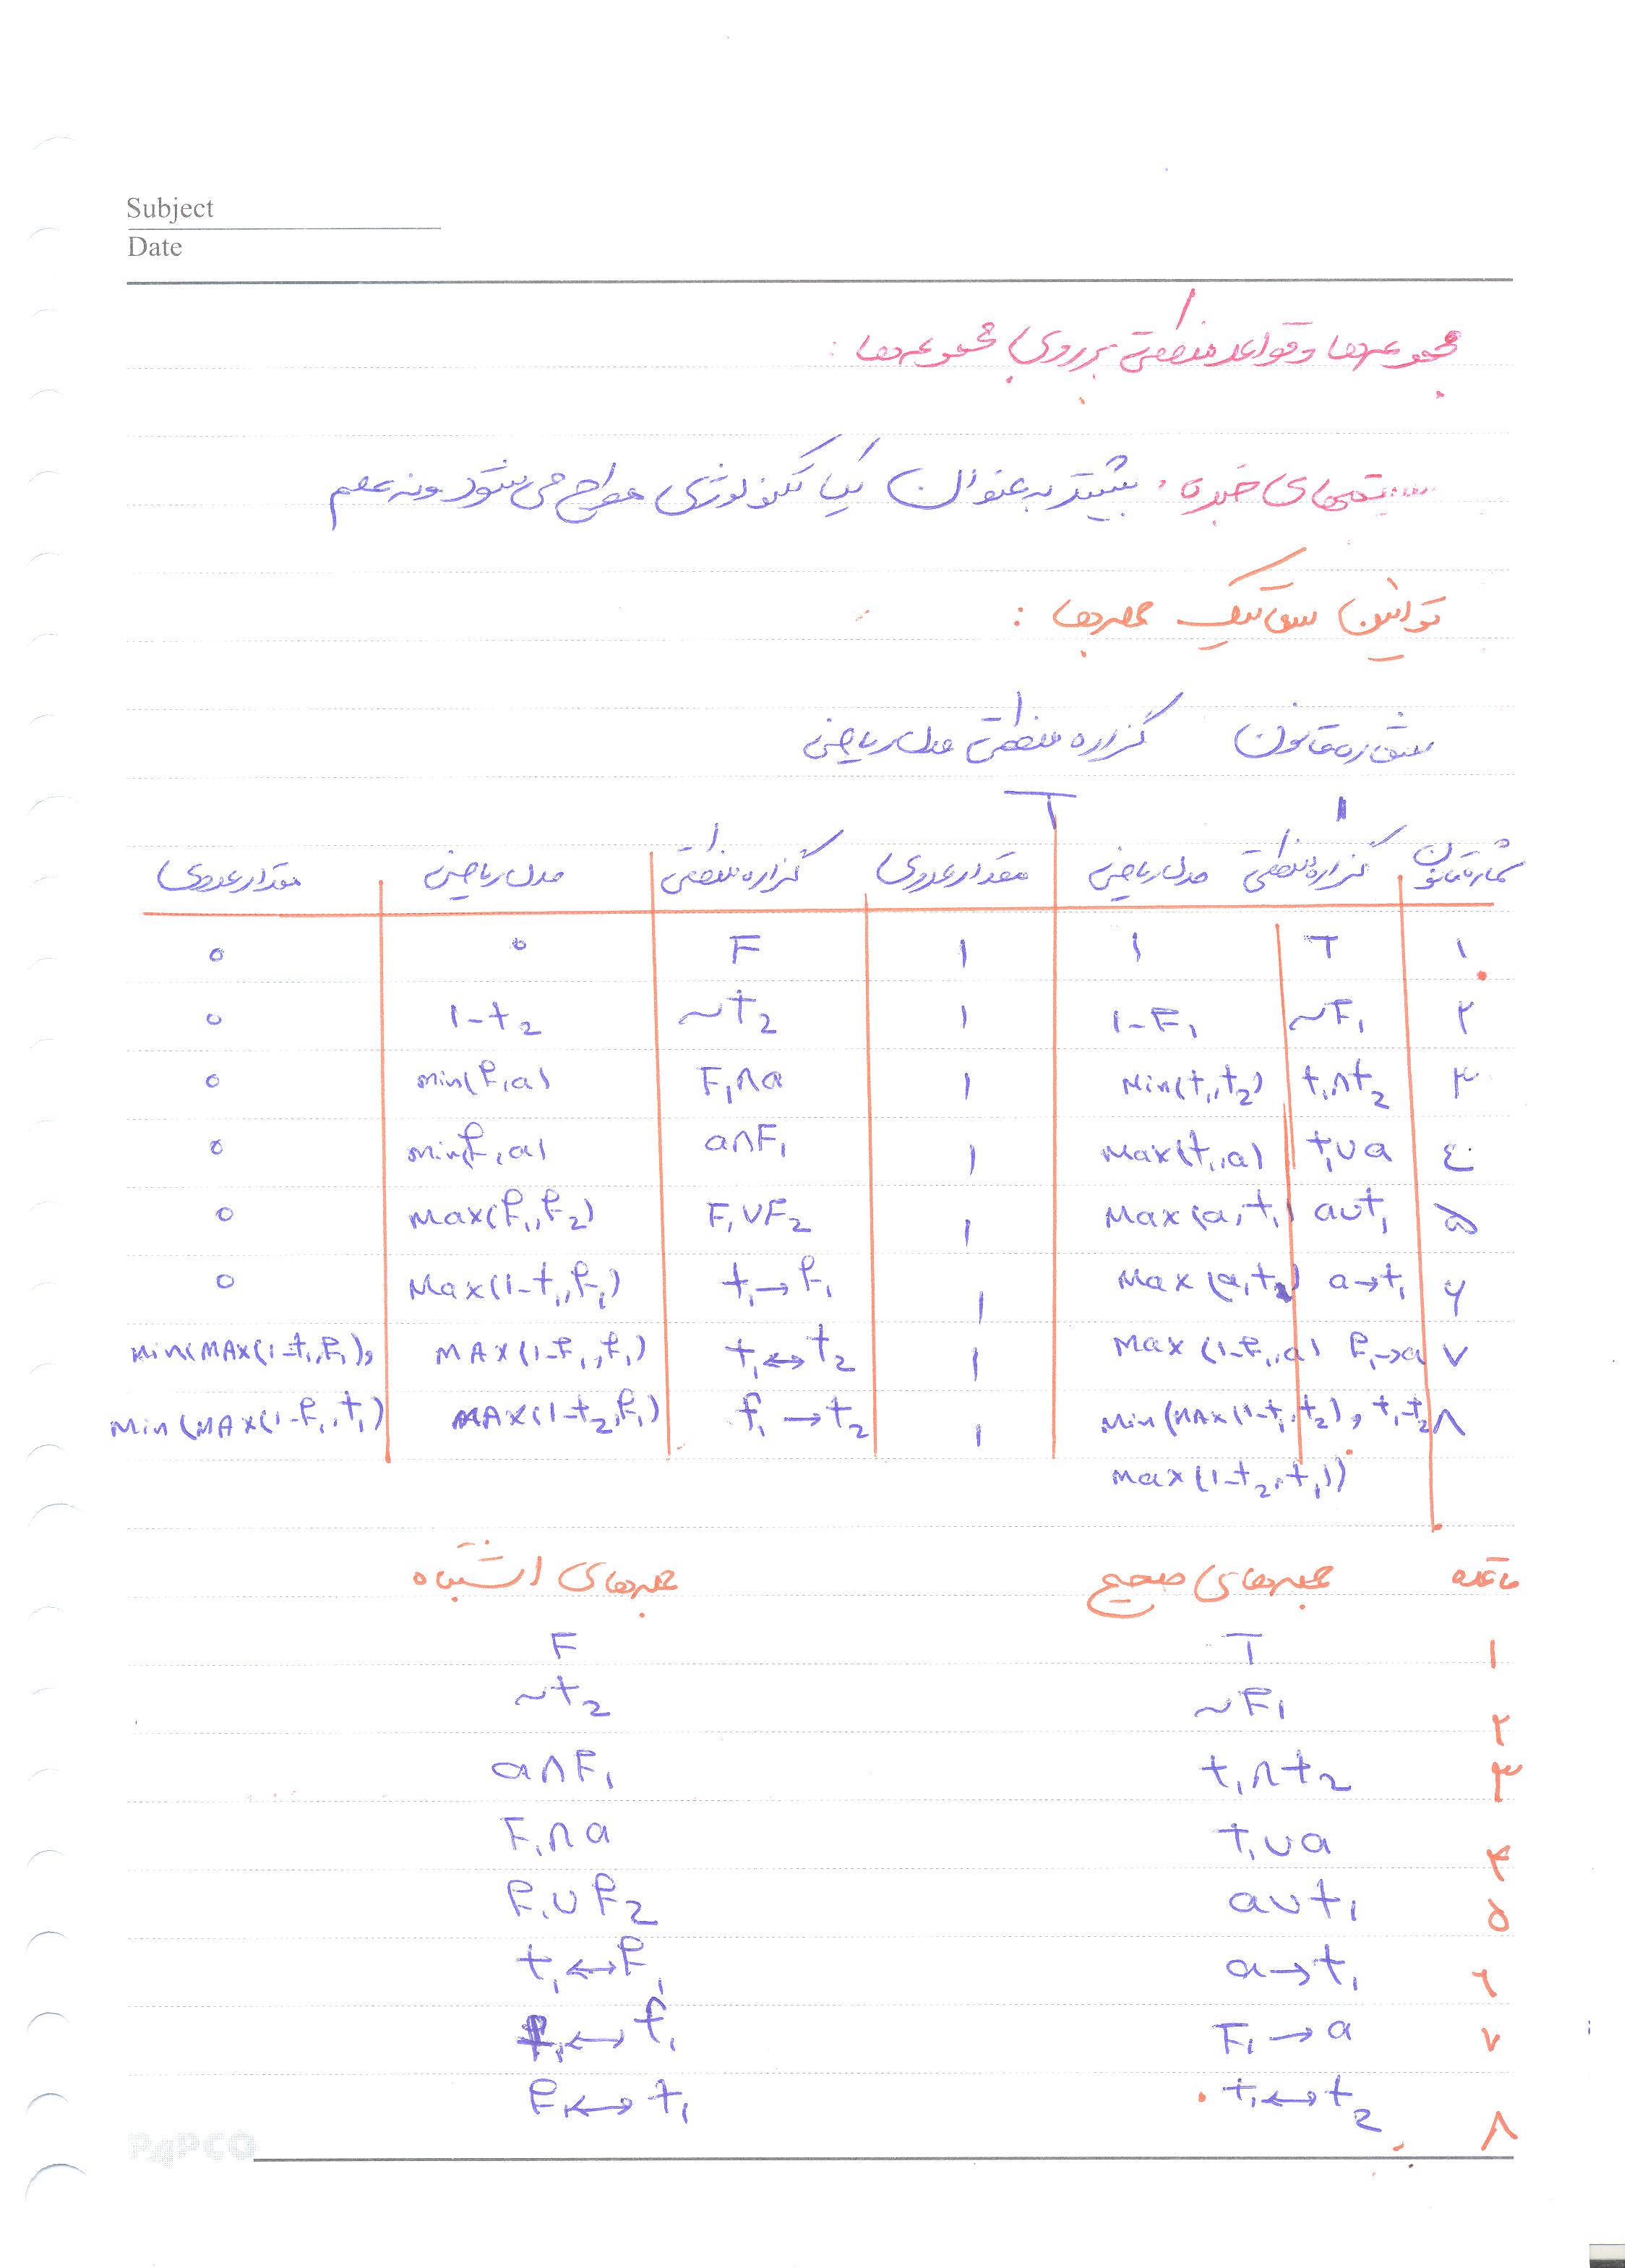 Subject
Date
مجموعه‌ها و قواعد منطقی بر روی مجموعه‌ها :
سیستمهای خبره : بیشتر به عنوان یک تکنولوژی مطرح می شود و نه علم
قوانین سمانتیک جمله‌ها :
شماره قانون گزاره منطقی مدل ریاضی
شماره قانون گزاره منطقی مدل ریاضی مقدار عددی گزاره منطقی مدل ریاضی مقدار عددی
۱ T 1 1 F 0 0
۲ ~F₁ 1-F₁ 1 ~t₂ 1-t₂ 0
۳ t₁∩t₂ Min(t₁,t₂) 1 F₁∩a min(f₁,a) 0
٤ t₁∪a Max(t₁,a) 1 a∩F₁ min(f₁,a) 0
۵ a∪t₁ Max(a,t₁) 1 F₁∪F₂ Max(f₁,f₂) 0
۶ a→t₁ Max(a,t₁) 1 t₁→f₁ Max(1-t₁,f₁) 0
۷ F₁→a Max(1-F₁,a) 1 t₁↔t₂ MAX(1-f₁,t₁) Min(MAX(1-t₁,f₁),
۸ t₁-t₂ Min(MAX(1-t₁,t₂), 1 f₁→t₂ MAX(1-t₂,f₁) Min(MAX(1-f₁,t₁)
max(1-t₂,t₁))
قاعده جمله‌های صحیح جمله‌های اشتباه
۱ T F
۲ ~F₁ ~t₂
۳ t₁∩t₂ a∩F₁
۴ t₁∪a F₁∩a
۵ a∪t₁ F₁∪F₂
۶ a→t₁ t₁↔F₁
۷ F₁→a ↔f₁
۸ t₁↔t₂ F₁↔t₁
PAPCO